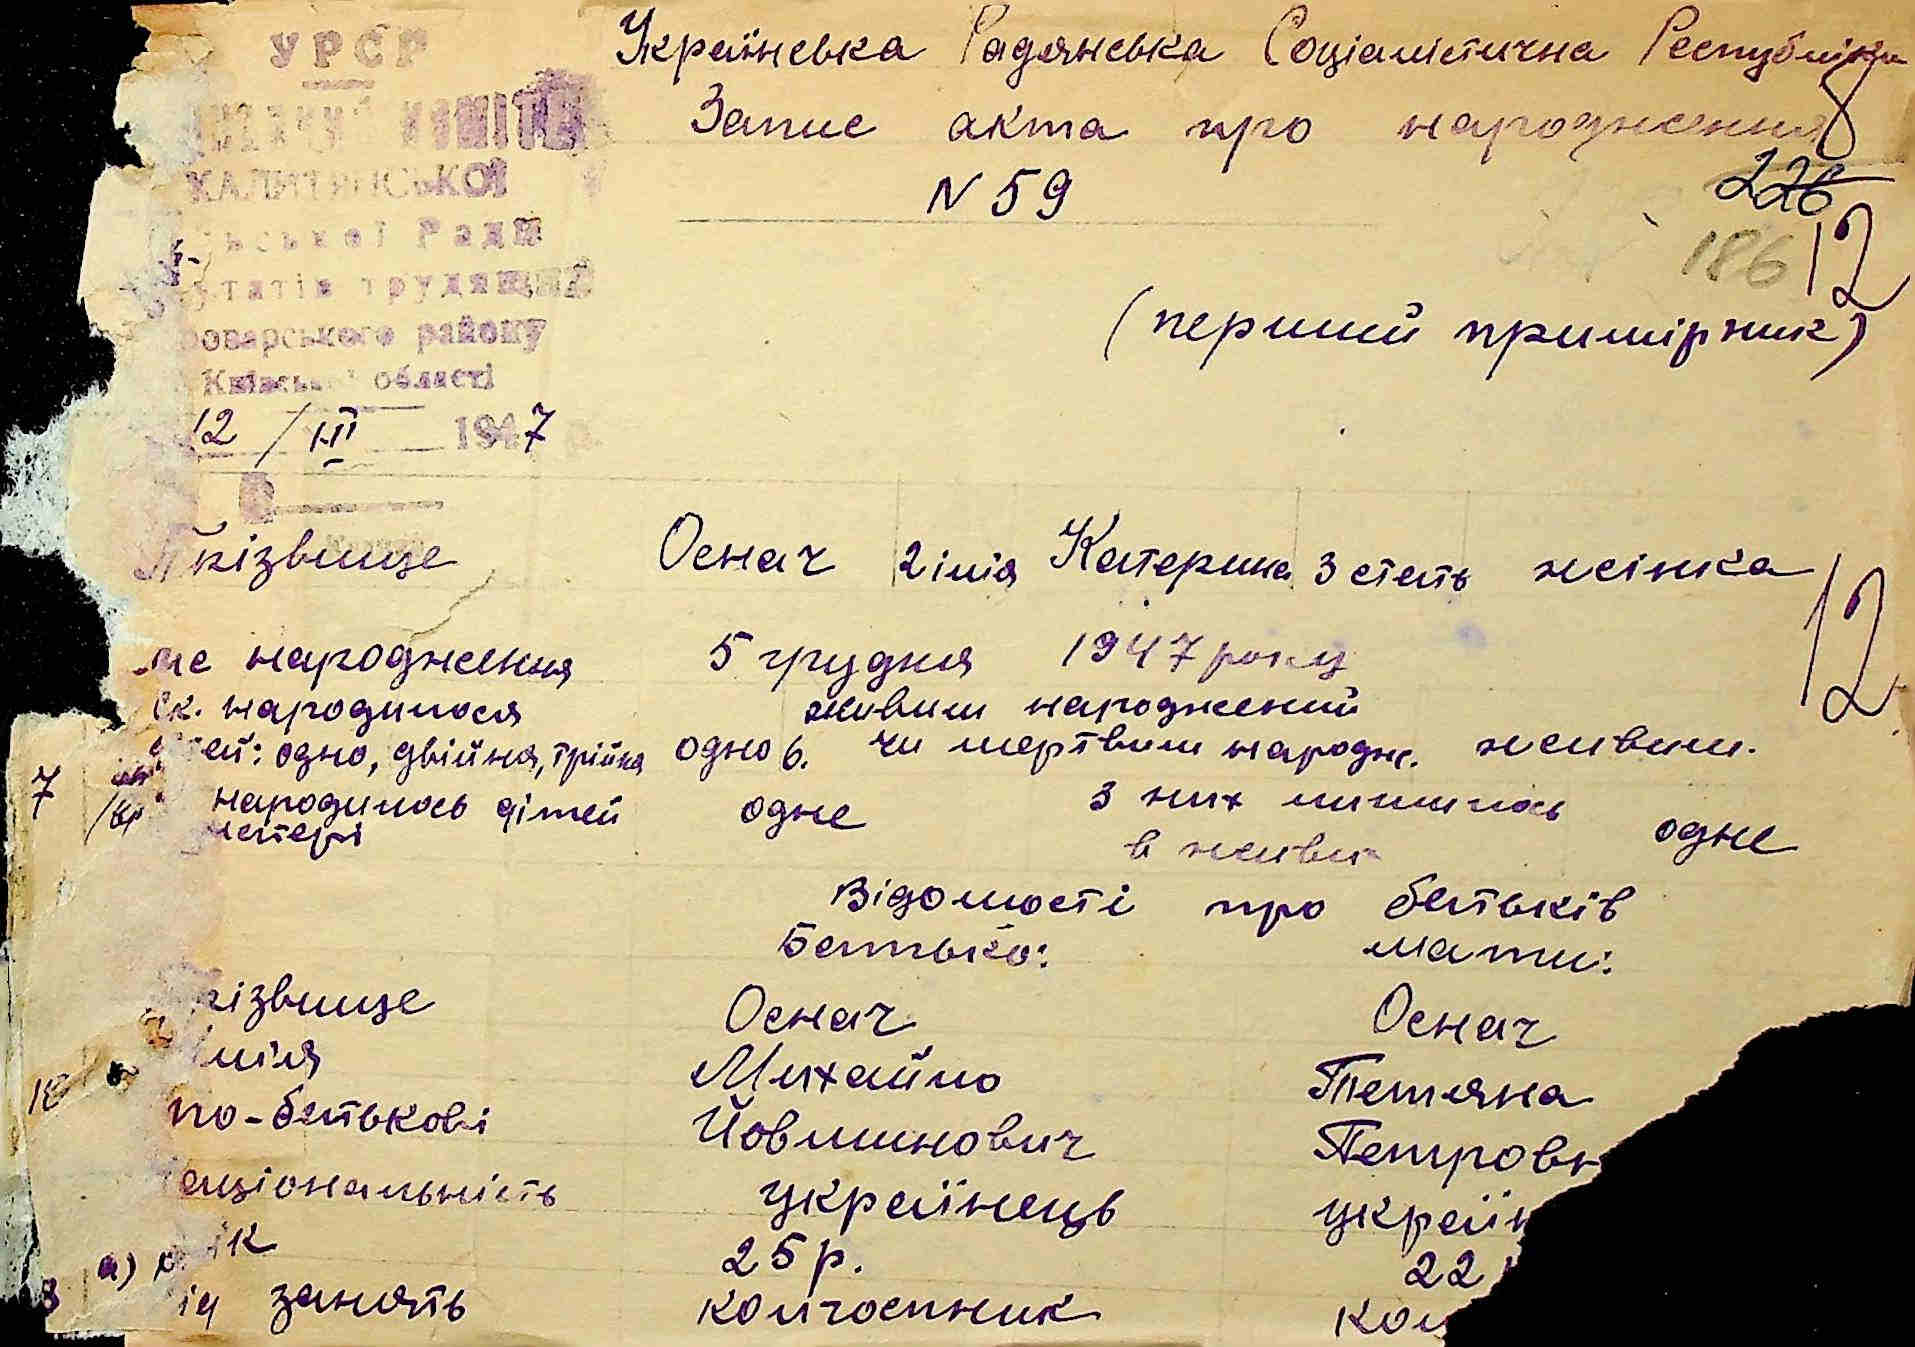 УРСР
КАЛИТЯНСЬКОЇ
Ради
трудящих
району
області
12 / III 1947
Українська Радянська Соціалістична Республіка
8
Запис акта про народження
N 59
226
186
12
(перший примірник)
Прізвище Оснач 2 імія Катерина 3 стать жінка
12
ме народження 5 грудня 1947 року
ск. народилося живим народжений
тей: одно, двійня, трійня одно 6. чи мертвим народж. живим.
7 народилось дітей одне з них лишилось одне
матері в живих
Відомості про батьків
Батько: мати:
різвище Оснач Оснач
імія Михайло Тетяна
по-батькові Йовминович Петровн
аціональність українець україн
а) рік 25 р. 22
ія занять колгоспник кол